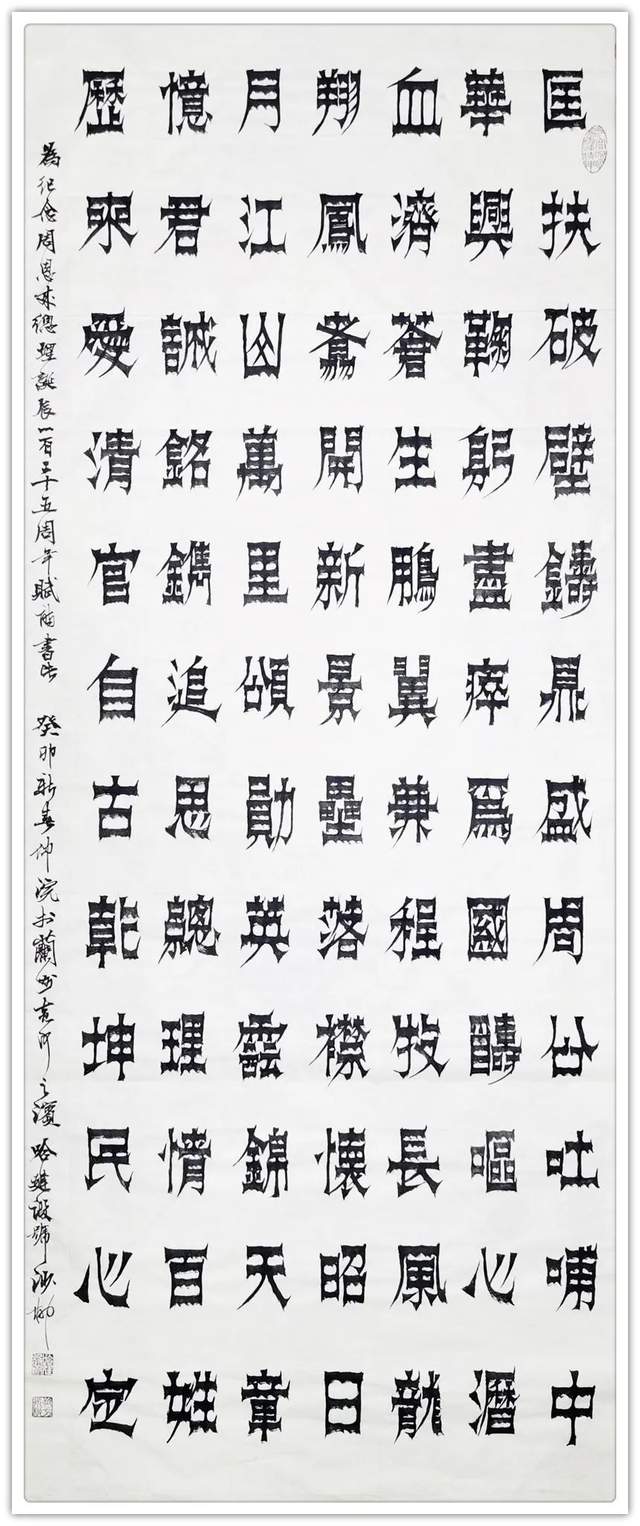 匡扶破壁鑄鼎盛周公吐哺中
華興鞠躬盡瘁爲國醻嘔心瀝
血濟蒼生鵬翼兼程牧長風龍
翔鳳翥開新景壘落襟懷昭日
月江山萬里頌勛英雲錦天章
憶君誠銘鐫追思總理情百姓
歷來愛清官自古乾坤民心定
爲紀念周恩來總理誕辰一百二十五周年賦 書 癸卯新春仲浣於蘭州黃河之濱 哈建設號沙柳